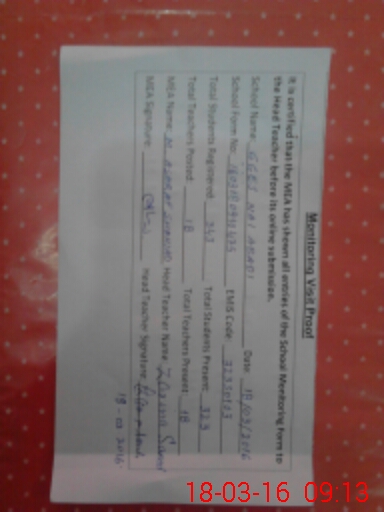 Monitoring Visit Proof
It is certified that the MEA has shown all entries of the School Monitoring Form to
the Head Teacher before its online submission.
School Name: GGES NAI ABADI Date: 18/03/2016
School Form No: EMIS Code: 32330103
Total Students Registered: Total Students Present: 323
Total Teachers Posted: 18 Total Teachers Present: 18
MEA Name: Head Teacher Name:
MEA Signature: Head Teacher Signature:
18-03-2016
18-03-16 09:13